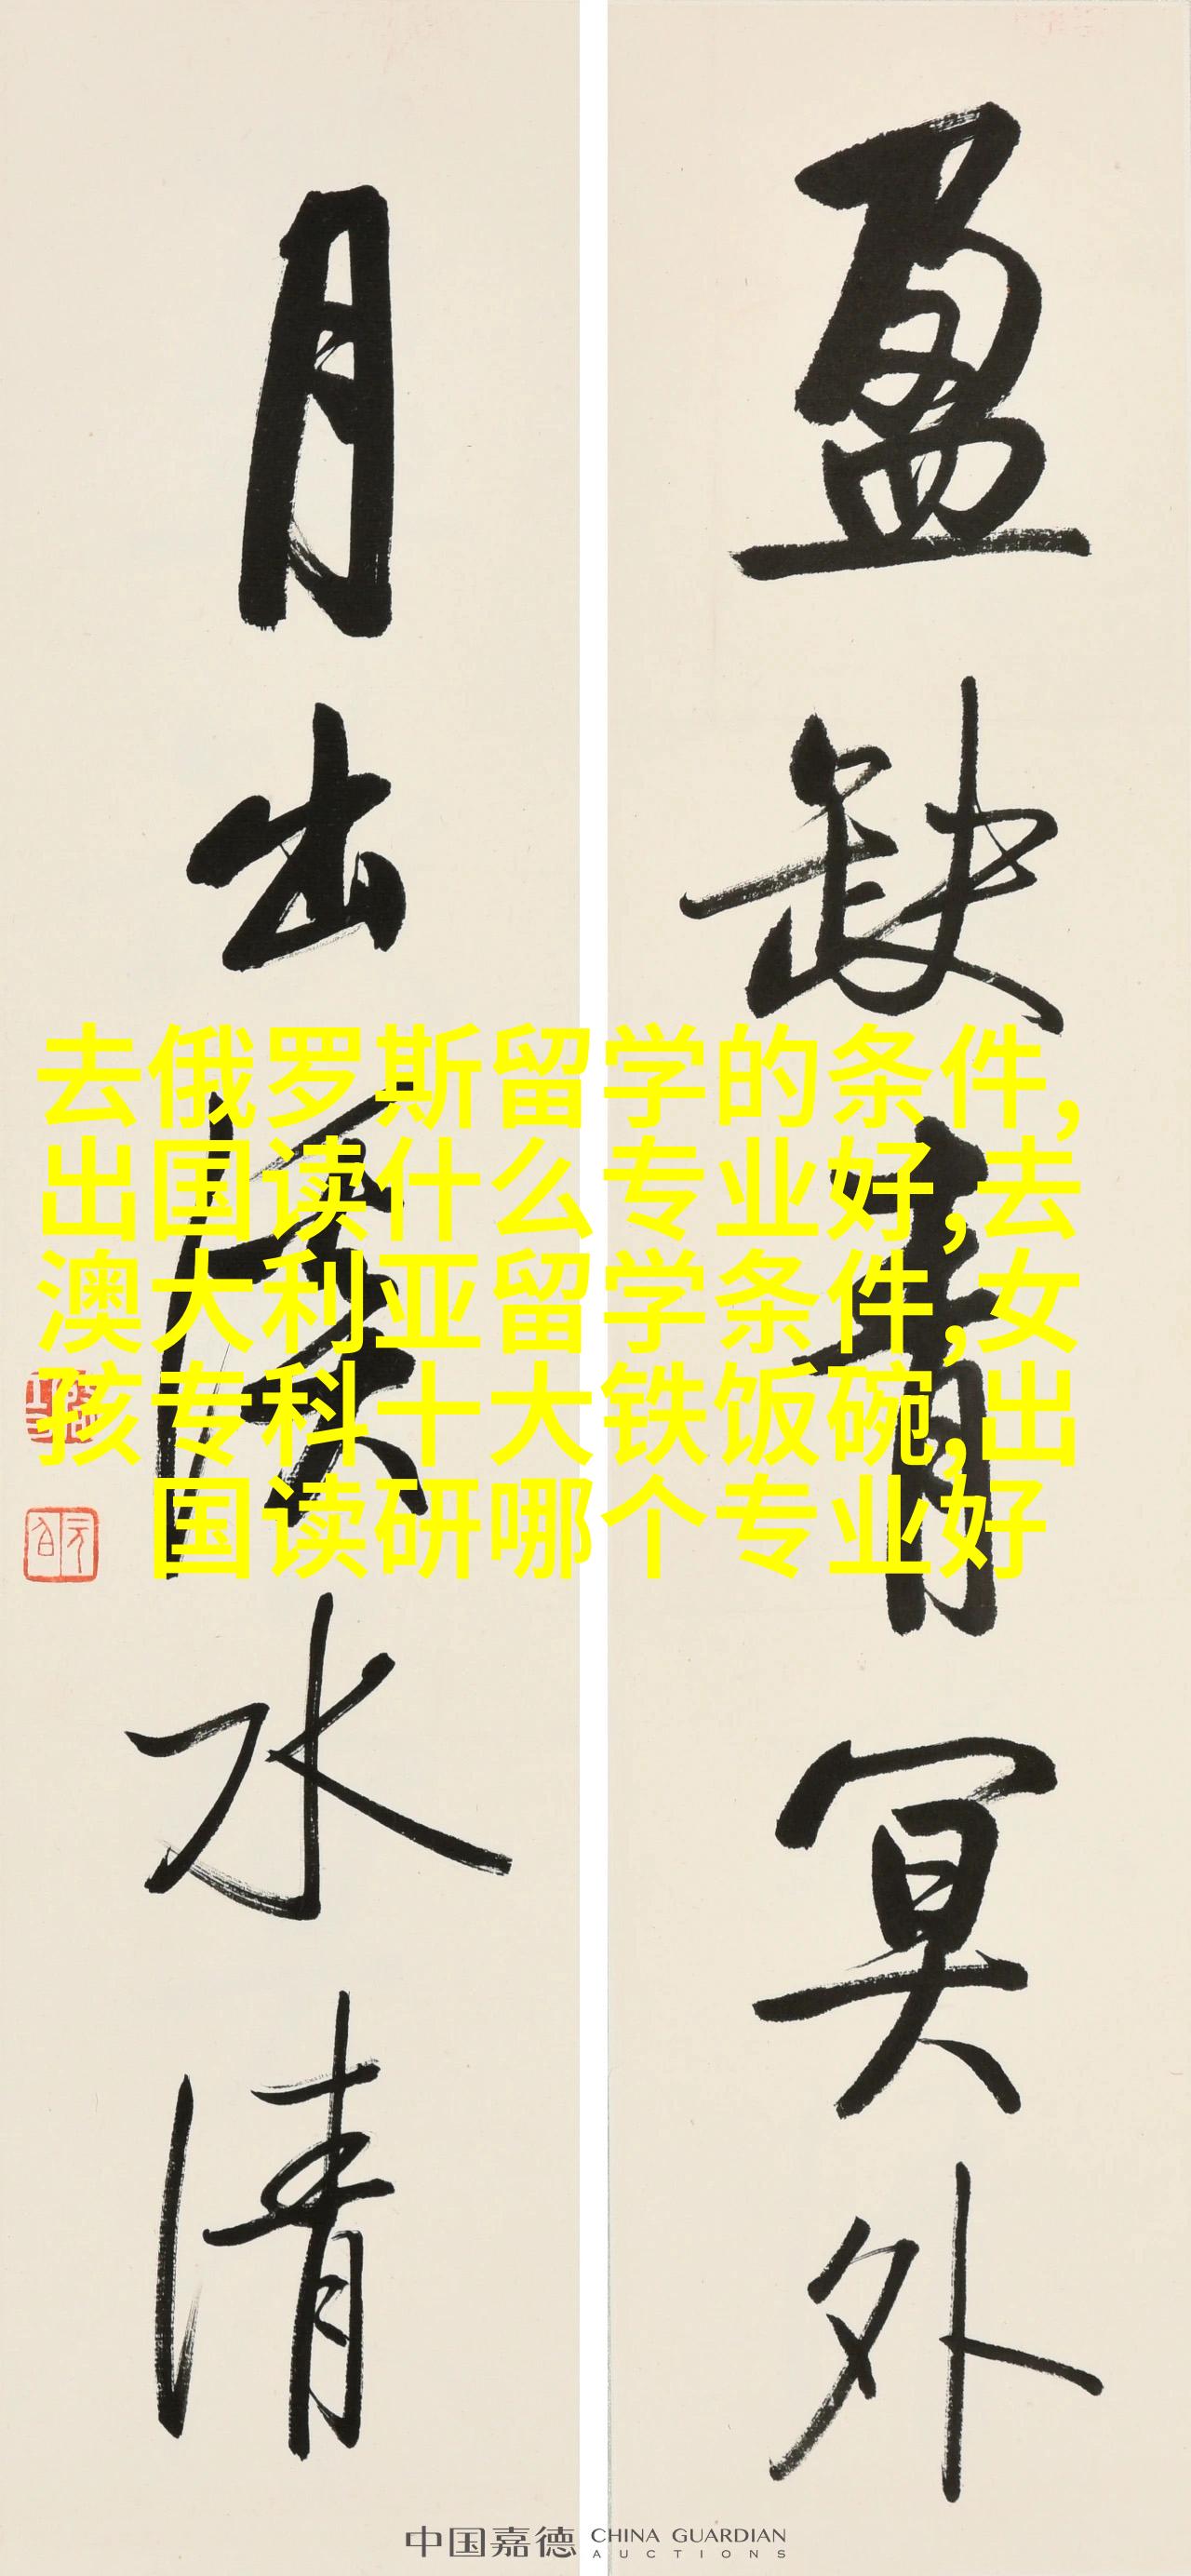 盈缺青冥外
月出溪水清
去俄罗斯留学的条件,
出国读什么专业好,去
澳大利亚留学条件,女
孩专科十大铁饭碗,出
国读研哪个专业好
中国嘉德 CHINA GUARDIAN
AUCTIONS